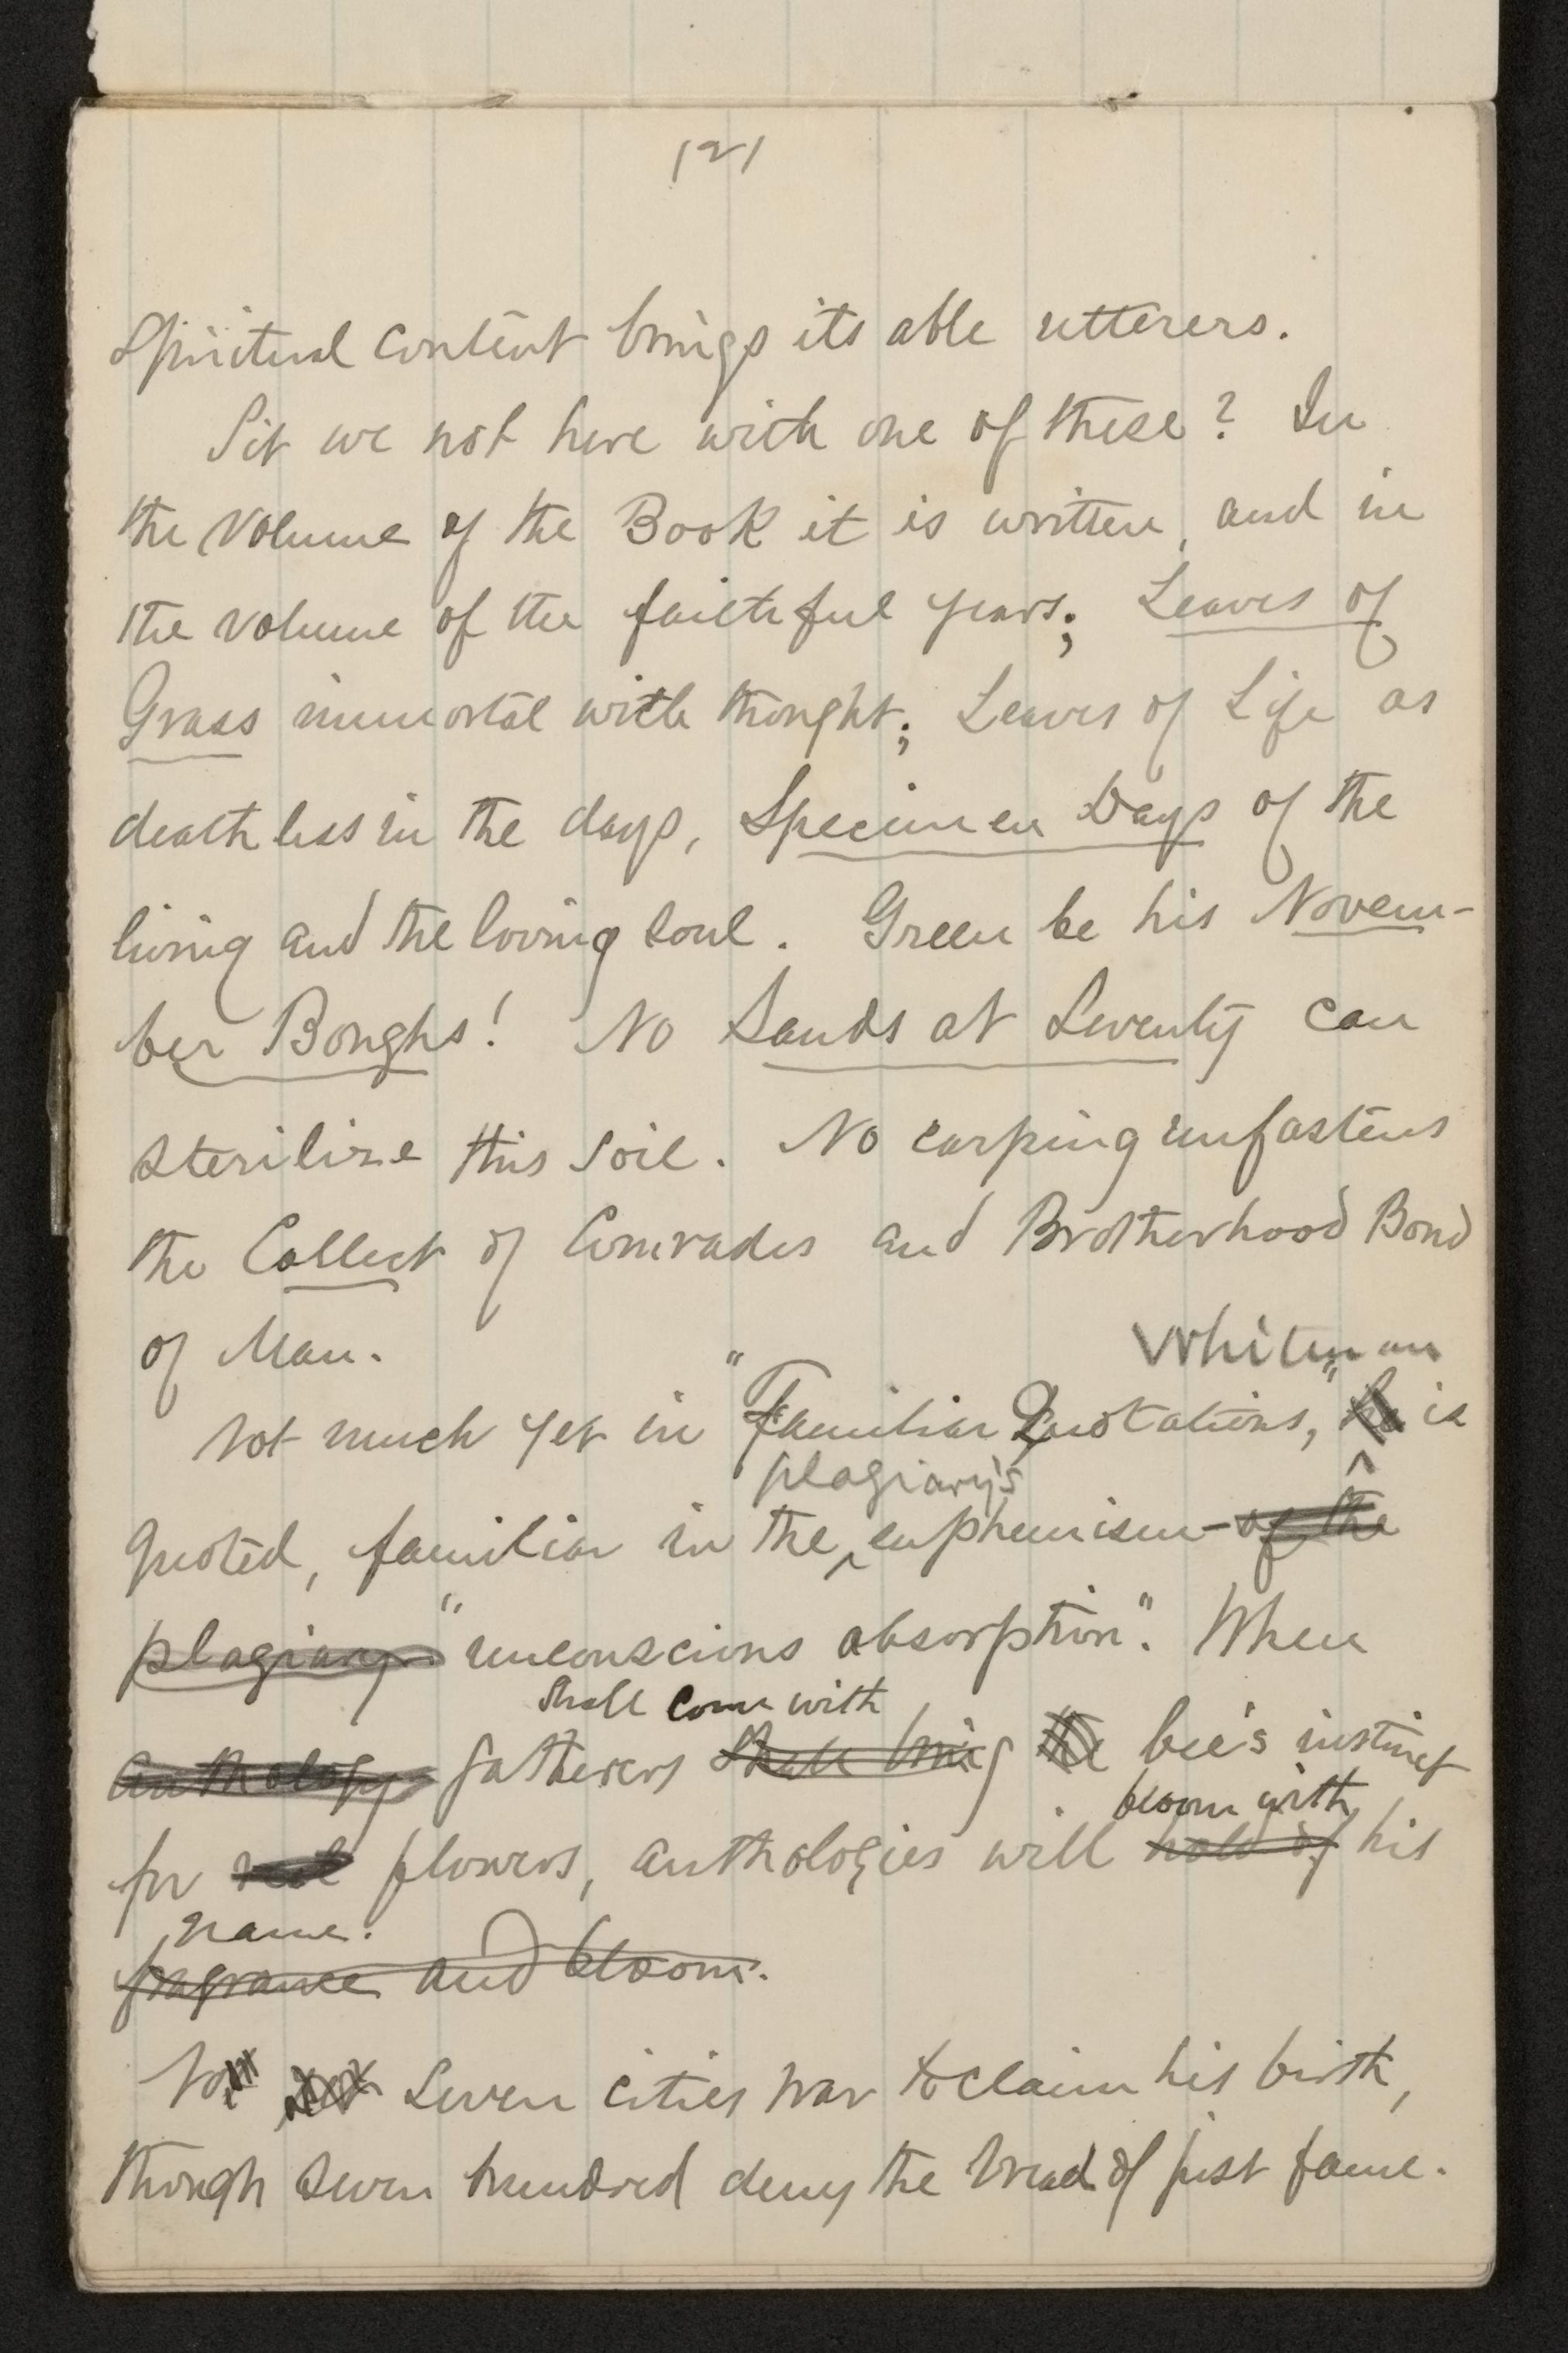 121
Spiritual content brings its able utterers.
Sit we not here with one of these? In
the Volume of the Book it is written, and in
the volume of the faithful years; Leaves of
Grass immortal with thought; Leaves of Life as
deathless in the days, Specimen Days of the
living and the loving soul. Green be his Novem-
ber Boughs! No Sands at Seventy can
sterilize this soil. No carping unfastens
the Collect of Comrades and Brotherhood Bond
of Man.
Whitman
Not much yet in "Familiar Quotations," he is
plagiary's
quoted, familiar in the euphemism of the
plagiary "unconscious absorption". When
shall come with
anthology gatherers shall bring the bee's instinct
bloom with
for real flowers, anthologies will hold of his
name.
fragrance and bloom.
Not seven cities war to claim his birth,
though seven hundred deny the bread of just fame.